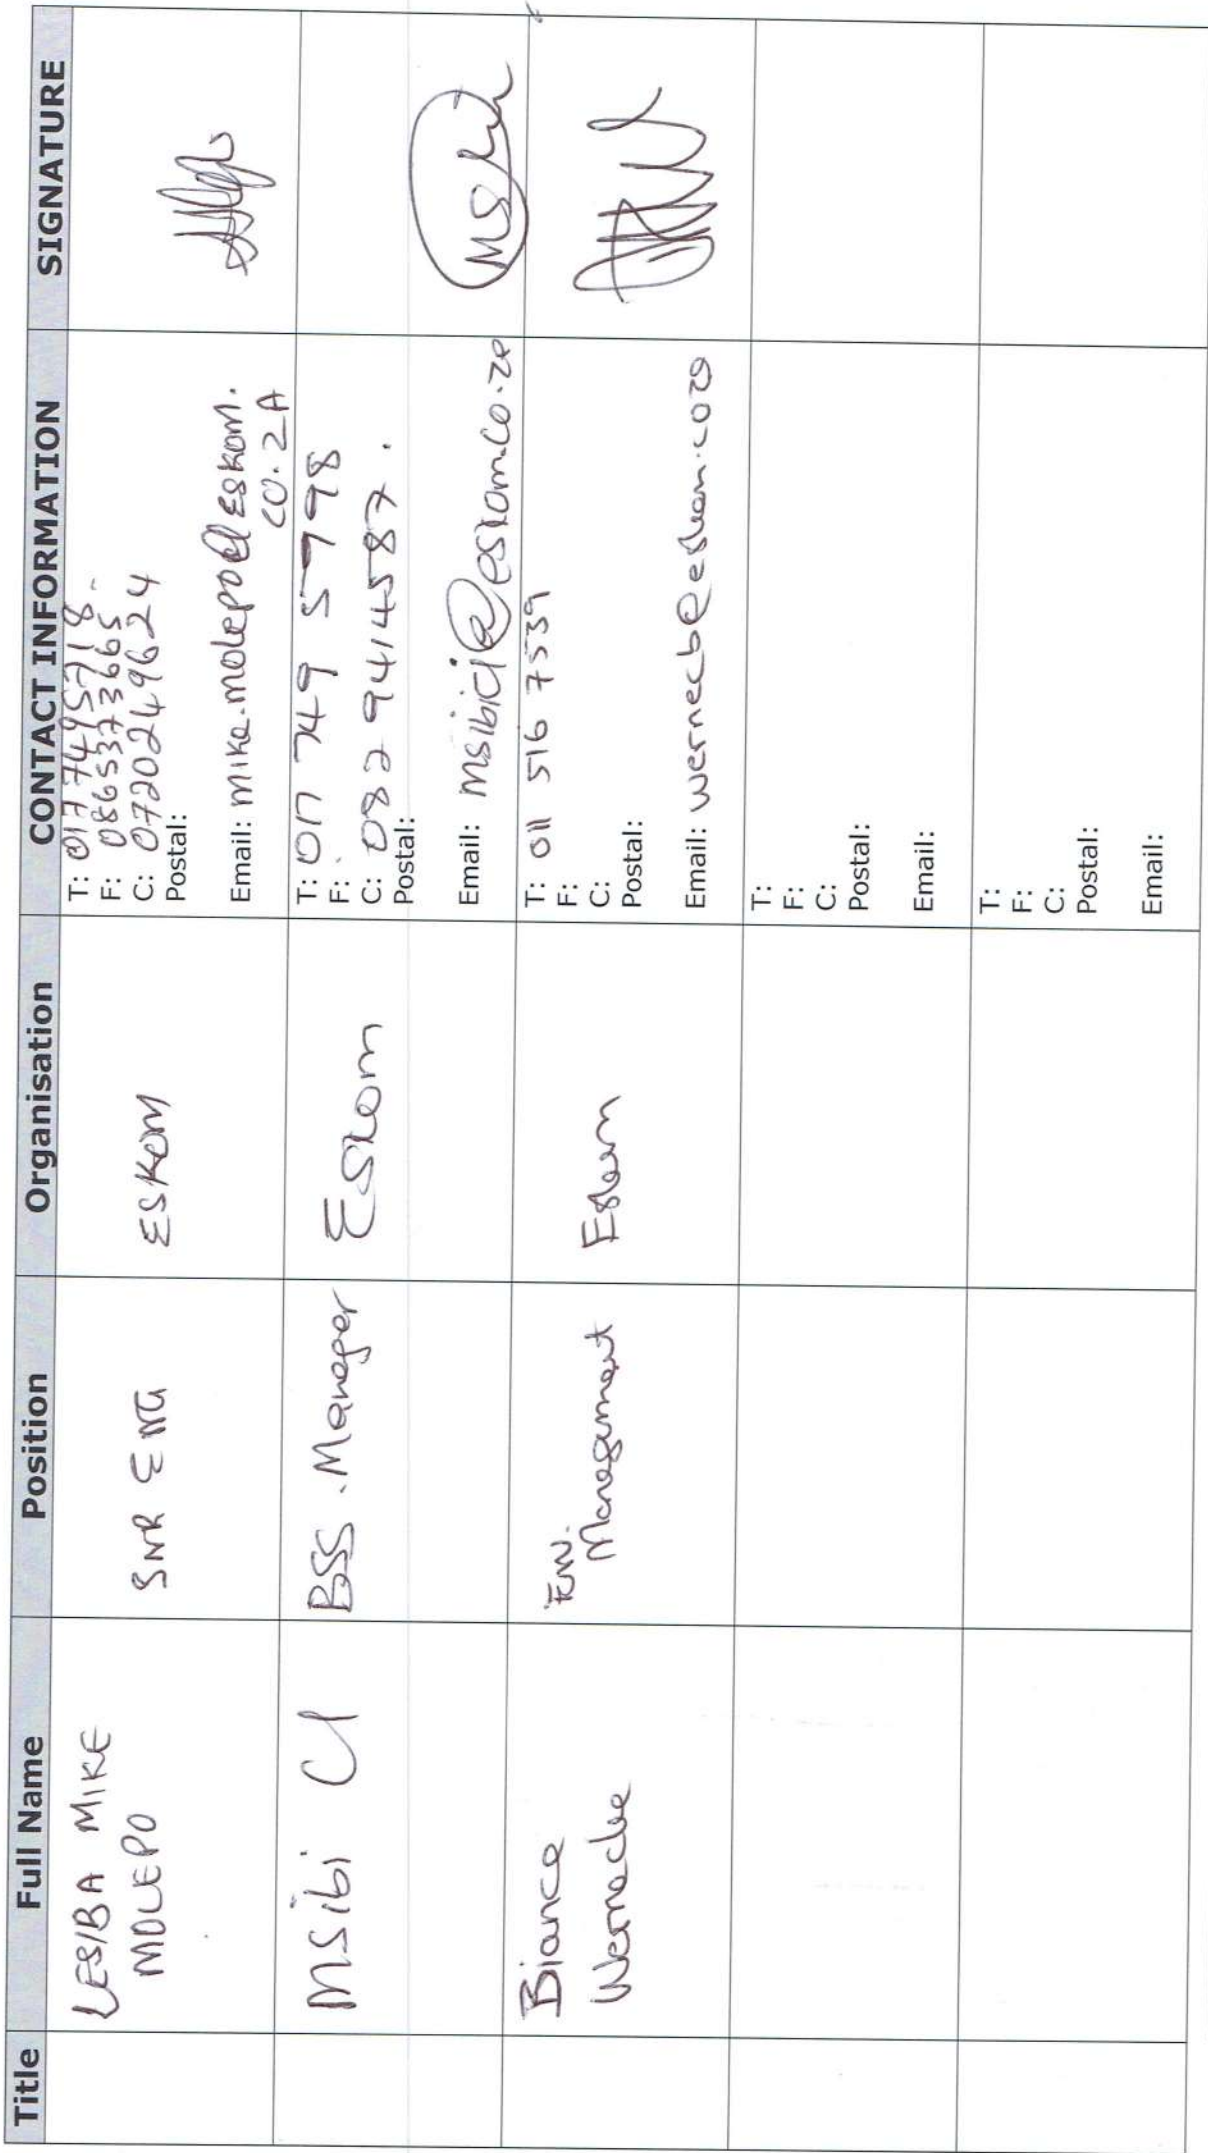 Title Full Name Position Organisation CONTACT INFORMATION SIGNATURE
LESIBA MIKE
MOLEPO
SNR ENG
ESKOM
T: 017 749 5718
F: 0865373665
C: 0720249624
Postal:
Email: mike.molepo@eskom.
co.ZA
Msibi CI
BSS. Manager
Eskom
T: 017 749 5798
F:
C: 082 9414587.
Postal:
Email: msibici@eskom.co.za
Bianca
Wernecke
Env.
Management
Eskom
T: 011 516 7539
F:
C:
Postal:
Email: wernecb@eskom.co.za
T:
F:
C:
Postal:
Email:
T:
F:
C:
Postal:
Email: